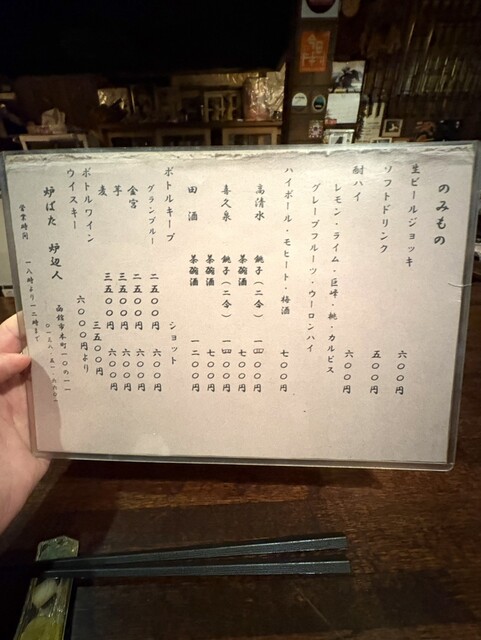 のみもの
生ビールジョッキ 六〇〇円
ソフトドリンク 五〇〇円
酎ハイ 六〇〇円
レモン・ライム・巨峰・桃・カルピス
グレープフルーツ・ウーロンハイ
ハイボール・モヒート・梅酒 七〇〇円
高清水 銚子(二合) 一四〇〇円
茶碗酒 七〇〇円
喜久泉 銚子(二合) 一四〇〇円
茶碗酒 七〇〇円
田酒 茶碗酒 一二〇〇円
ボトルキープ ショット
グランブルー 二五〇〇円 六〇〇円
金宮 二五〇〇円 六〇〇円
芋 三五〇〇円 六〇〇円
麦 三五〇〇円 六〇〇円
ボトルワイン 三五〇〇円
ウイスキー 六〇〇〇円より
炉ばた 炉辺人 函館市本町一〇の一一
営業時間 一八時より二二時まで